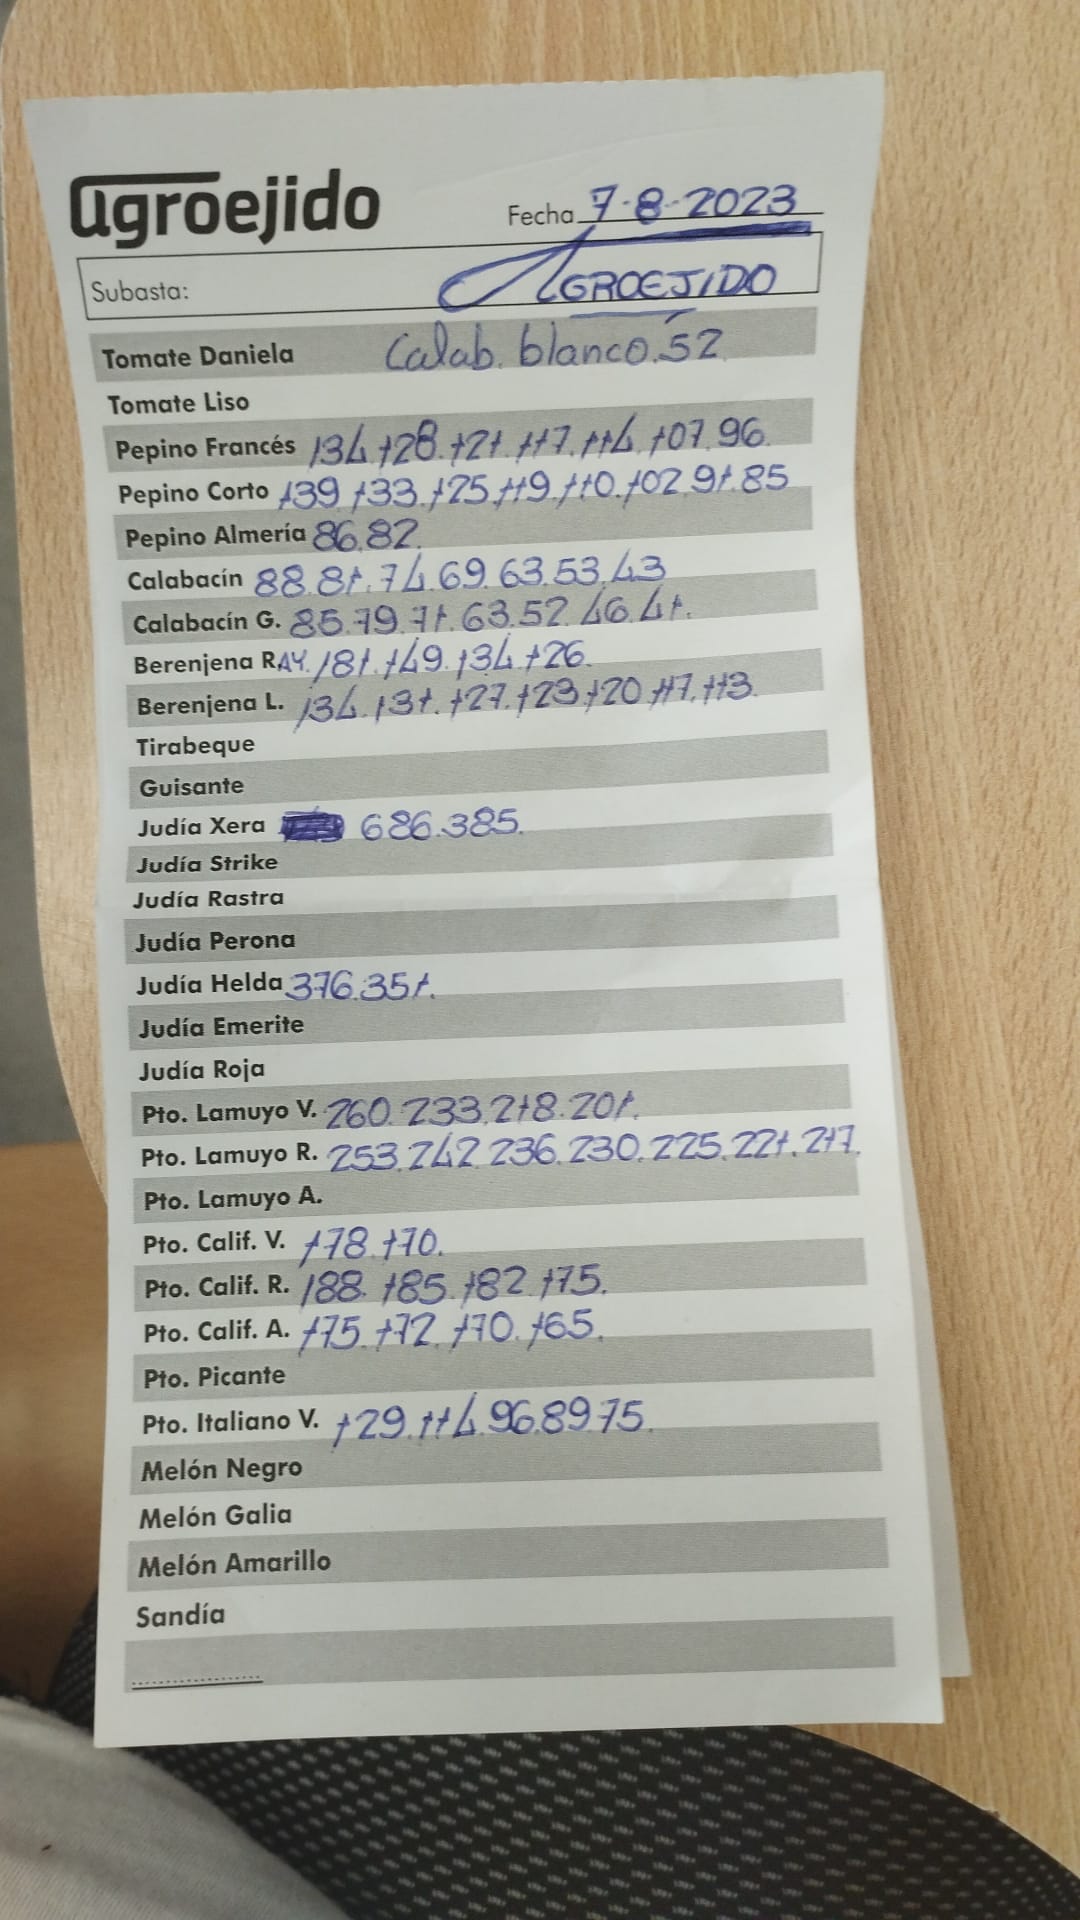 agroejido
Fecha 7-8-2023
Subasta: AGROEJIDO
Tomate Daniela Calab. blanco.52
Tomate Liso
Pepino Francés 134.128.121.117.114.107.96.
Pepino Corto 139.133.125.119.110.102.91.85
Pepino Almería 86.82.
Calabacín 88.81.74.69.63.53.43
Calabacín G. 85.79.71.63.52.46.41.
Berenjena RAY. 181.149.134.126.
Berenjena L. 134.131.127.123.120.117.113.
Tirabeque
Guisante
Judía Xera 686.385.
Judía Strike
Judía Rastra
Judía Perona
Judía Helda 376.351.
Judía Emerite
Judía Roja
Pto. Lamuyo V. 260.233.218.201.
Pto. Lamuyo R. 253.242.236.230.225.221.217.
Pto. Lamuyo A.
Pto. Calif. V. 178.170.
Pto. Calif. R. 188.185.182.175.
Pto. Calif. A. 175.172.170.165.
Pto. Picante
Pto. Italiano V. 129.114.96.89.75.
Melón Negro
Melón Galia
Melón Amarillo
Sandía